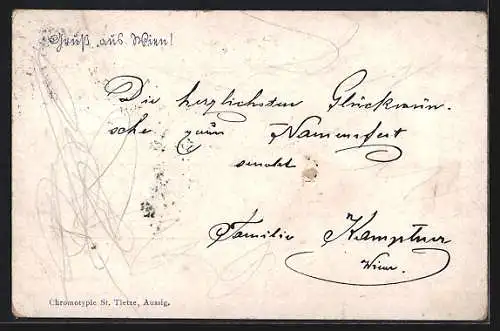 Gruß aus Wien!
Die herzlichsten Glückwün-
sche zum Namensfest
sendet
Familie Kamptner
Wien.
Chromotypie St. Tietze, Aussig.